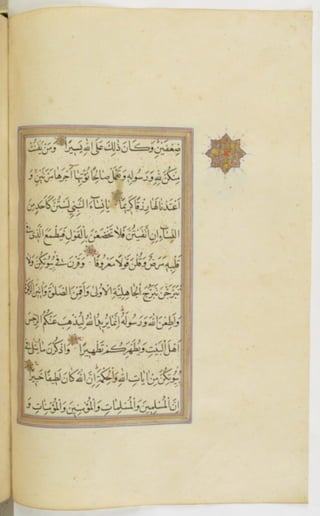 ضِعْفَيْنِ وَكَانَ ذَٰلِكَ عَلَى اللّٰهِ يَسِيرًا وَمَنْ يَقْنُتْ
مِنْكُنَّ لِلّٰهِ وَرَسُولِهِ وَتَعْمَلْ صَالِحًا نُؤْتِهَا أَجْرَهَا مَرَّتَيْنِ وَ
أَعْتَدْنَا لَهَا رِزْقًا كَرِيمًا يَا نِسَاءَ النَّبِيِّ لَسْتُنَّ كَأَحَدٍ مِنَ
النِّسَاءِ إِنِ اتَّقَيْتُنَّ فَلَا تَخْضَعْنَ بِالْقَوْلِ فَيَطْمَعَ الَّذِي فِي
قَلْبِهِ مَرَضٌ وَقُلْنَ قَوْلًا مَعْرُوفًا وَقَرْنَ فِي بُيُوتِكُنَّ وَلَا
تَبَرَّجْنَ تَبَرُّجَ الْجَاهِلِيَّةِ الْأُولَىٰ وَأَقِمْنَ الصَّلٰوةَ وَآتِينَ الزَّكٰوةَ
وَأَطِعْنَ اللّٰهَ وَرَسُولَهُ إِنَّمَا يُرِيدُ اللّٰهُ لِيُذْهِبَ عَنْكُمُ الرِّجْسَ
أَهْلَ الْبَيْتِ وَيُطَهِّرَكُمْ تَطْهِيرًا وَاذْكُرْنَ مَا يُتْلَىٰ فِي
بُيُوتِكُنَّ مِنْ آيَاتِ اللّٰهِ وَالْحِكْمَةِ إِنَّ اللّٰهَ كَانَ لَطِيفًا خَبِيرًا
إِنَّ الْمُسْلِمِينَ وَالْمُسْلِمَاتِ وَالْمُؤْمِنِينَ وَالْمُؤْمِنَاتِ وَ